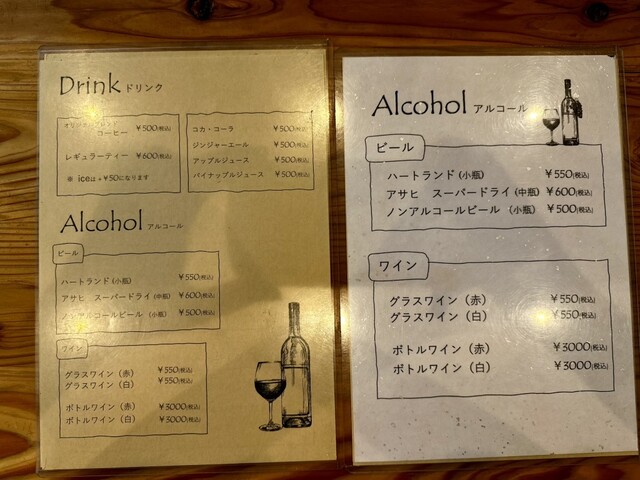 Drink ドリンク
オリジナルブレンド
コーヒー ¥500(税込)
レギュラーティー ¥600(税込)
※ iceは+¥50になります
コカ・コーラ ¥500(税込)
ジンジャーエール ¥500(税込)
アップルジュース ¥500(税込)
パイナップルジュース ¥500(税込)
Alcohol アルコール
ビール
ハートランド(小瓶) ¥550(税込)
アサヒ スーパードライ(中瓶) ¥600(税込)
ノンアルコールビール (小瓶) ¥500(税込)
ワイン
グラスワイン(赤) ¥550(税込)
グラスワイン(白) ¥550(税込)
ボトルワイン(赤) ¥3000(税込)
ボトルワイン(白) ¥3000(税込)
Alcohol アルコール
ビール
ハートランド(小瓶) ¥550(税込)
アサヒ スーパードライ(中瓶) ¥600(税込)
ノンアルコールビール (小瓶) ¥500(税込)
ワイン
グラスワイン(赤) ¥550(税込)
グラスワイン(白) ¥550(税込)
ボトルワイン(赤) ¥3000(税込)
ボトルワイン(白) ¥3000(税込)